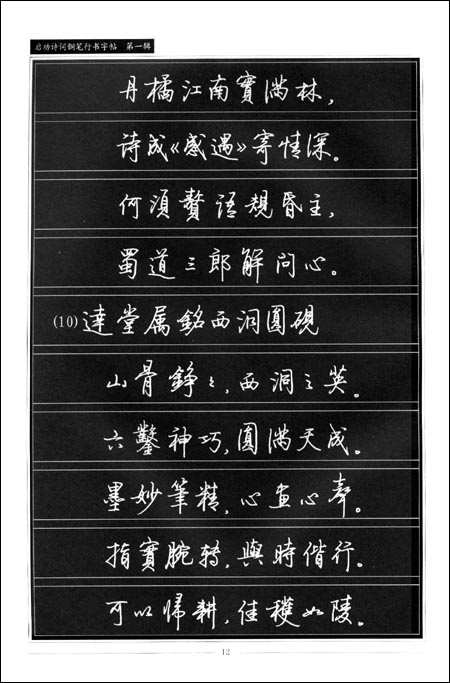 启功诗词钢笔行书字帖 第一辑
丹橘江南實满林，
诗成《感遇》寄情深。
何須贅语規昏主，
蜀道三郎解问心。
(10)達堂属銘西洞圓硯
山骨錚々，西洞之英。
六鑿神巧，圓满天成。
墨妙筆精，心画心聲。
指實腕转，與時偕行。
可以归耕，佳穫如陵。
12